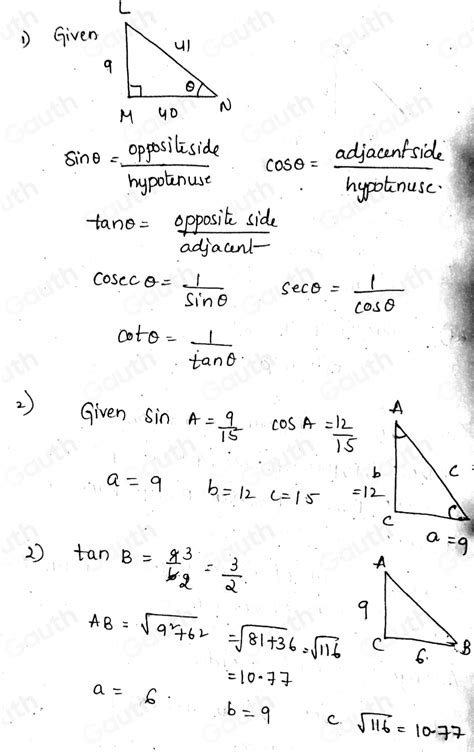 1) Given
L
9
41
θ
M
40
N
sinθ = opposite side / hypotenuse
cosθ = adjacent side / hypotenuse.
tanθ = opposite side / adjacent
cosec θ = 1 / sin θ
secθ = 1 / cosθ
cotθ = 1 / tanθ.
2) Given sin A = 9/15 cos A = 12/15
a = 9 b = 12 c = 15
A
b = 12
c
C
a = 9
2) tan B = 9 3 / 6 2 = 3/2
A
9
C
6.
B
AB = √9²+6² = √81+36 = √116
= 10.77
a = 6. b = 9 c √116 = 10.77
Gauth